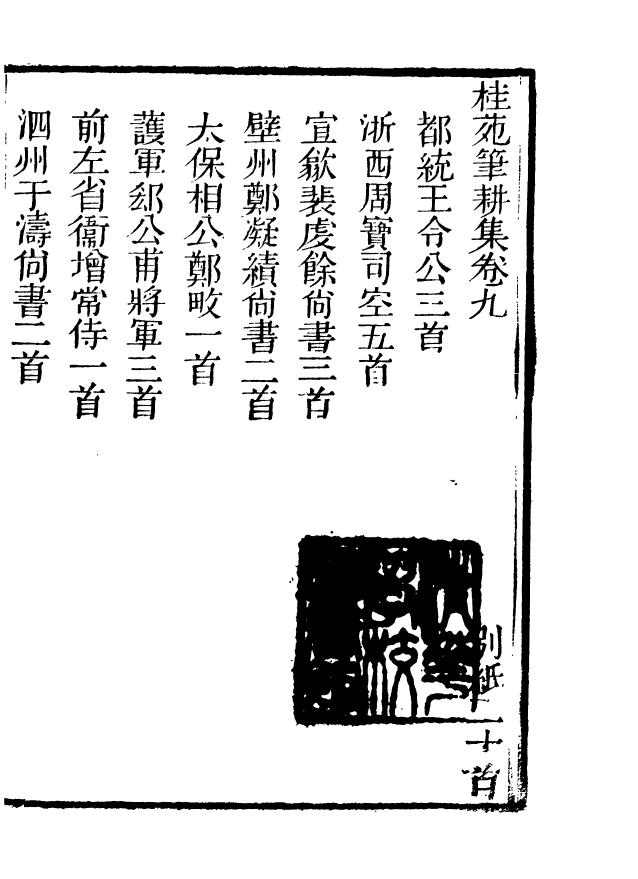 桂苑筆耕集卷九　別紙二十首
都統王令公三首
浙西周寶司空五首
宣歙裴虔餘尙書三首
壁州鄭凝績尙書二首
太保相公鄭畋一首
護軍郄公甫將軍三首
前左省衞增常侍一首
泗州于濤尙書二首